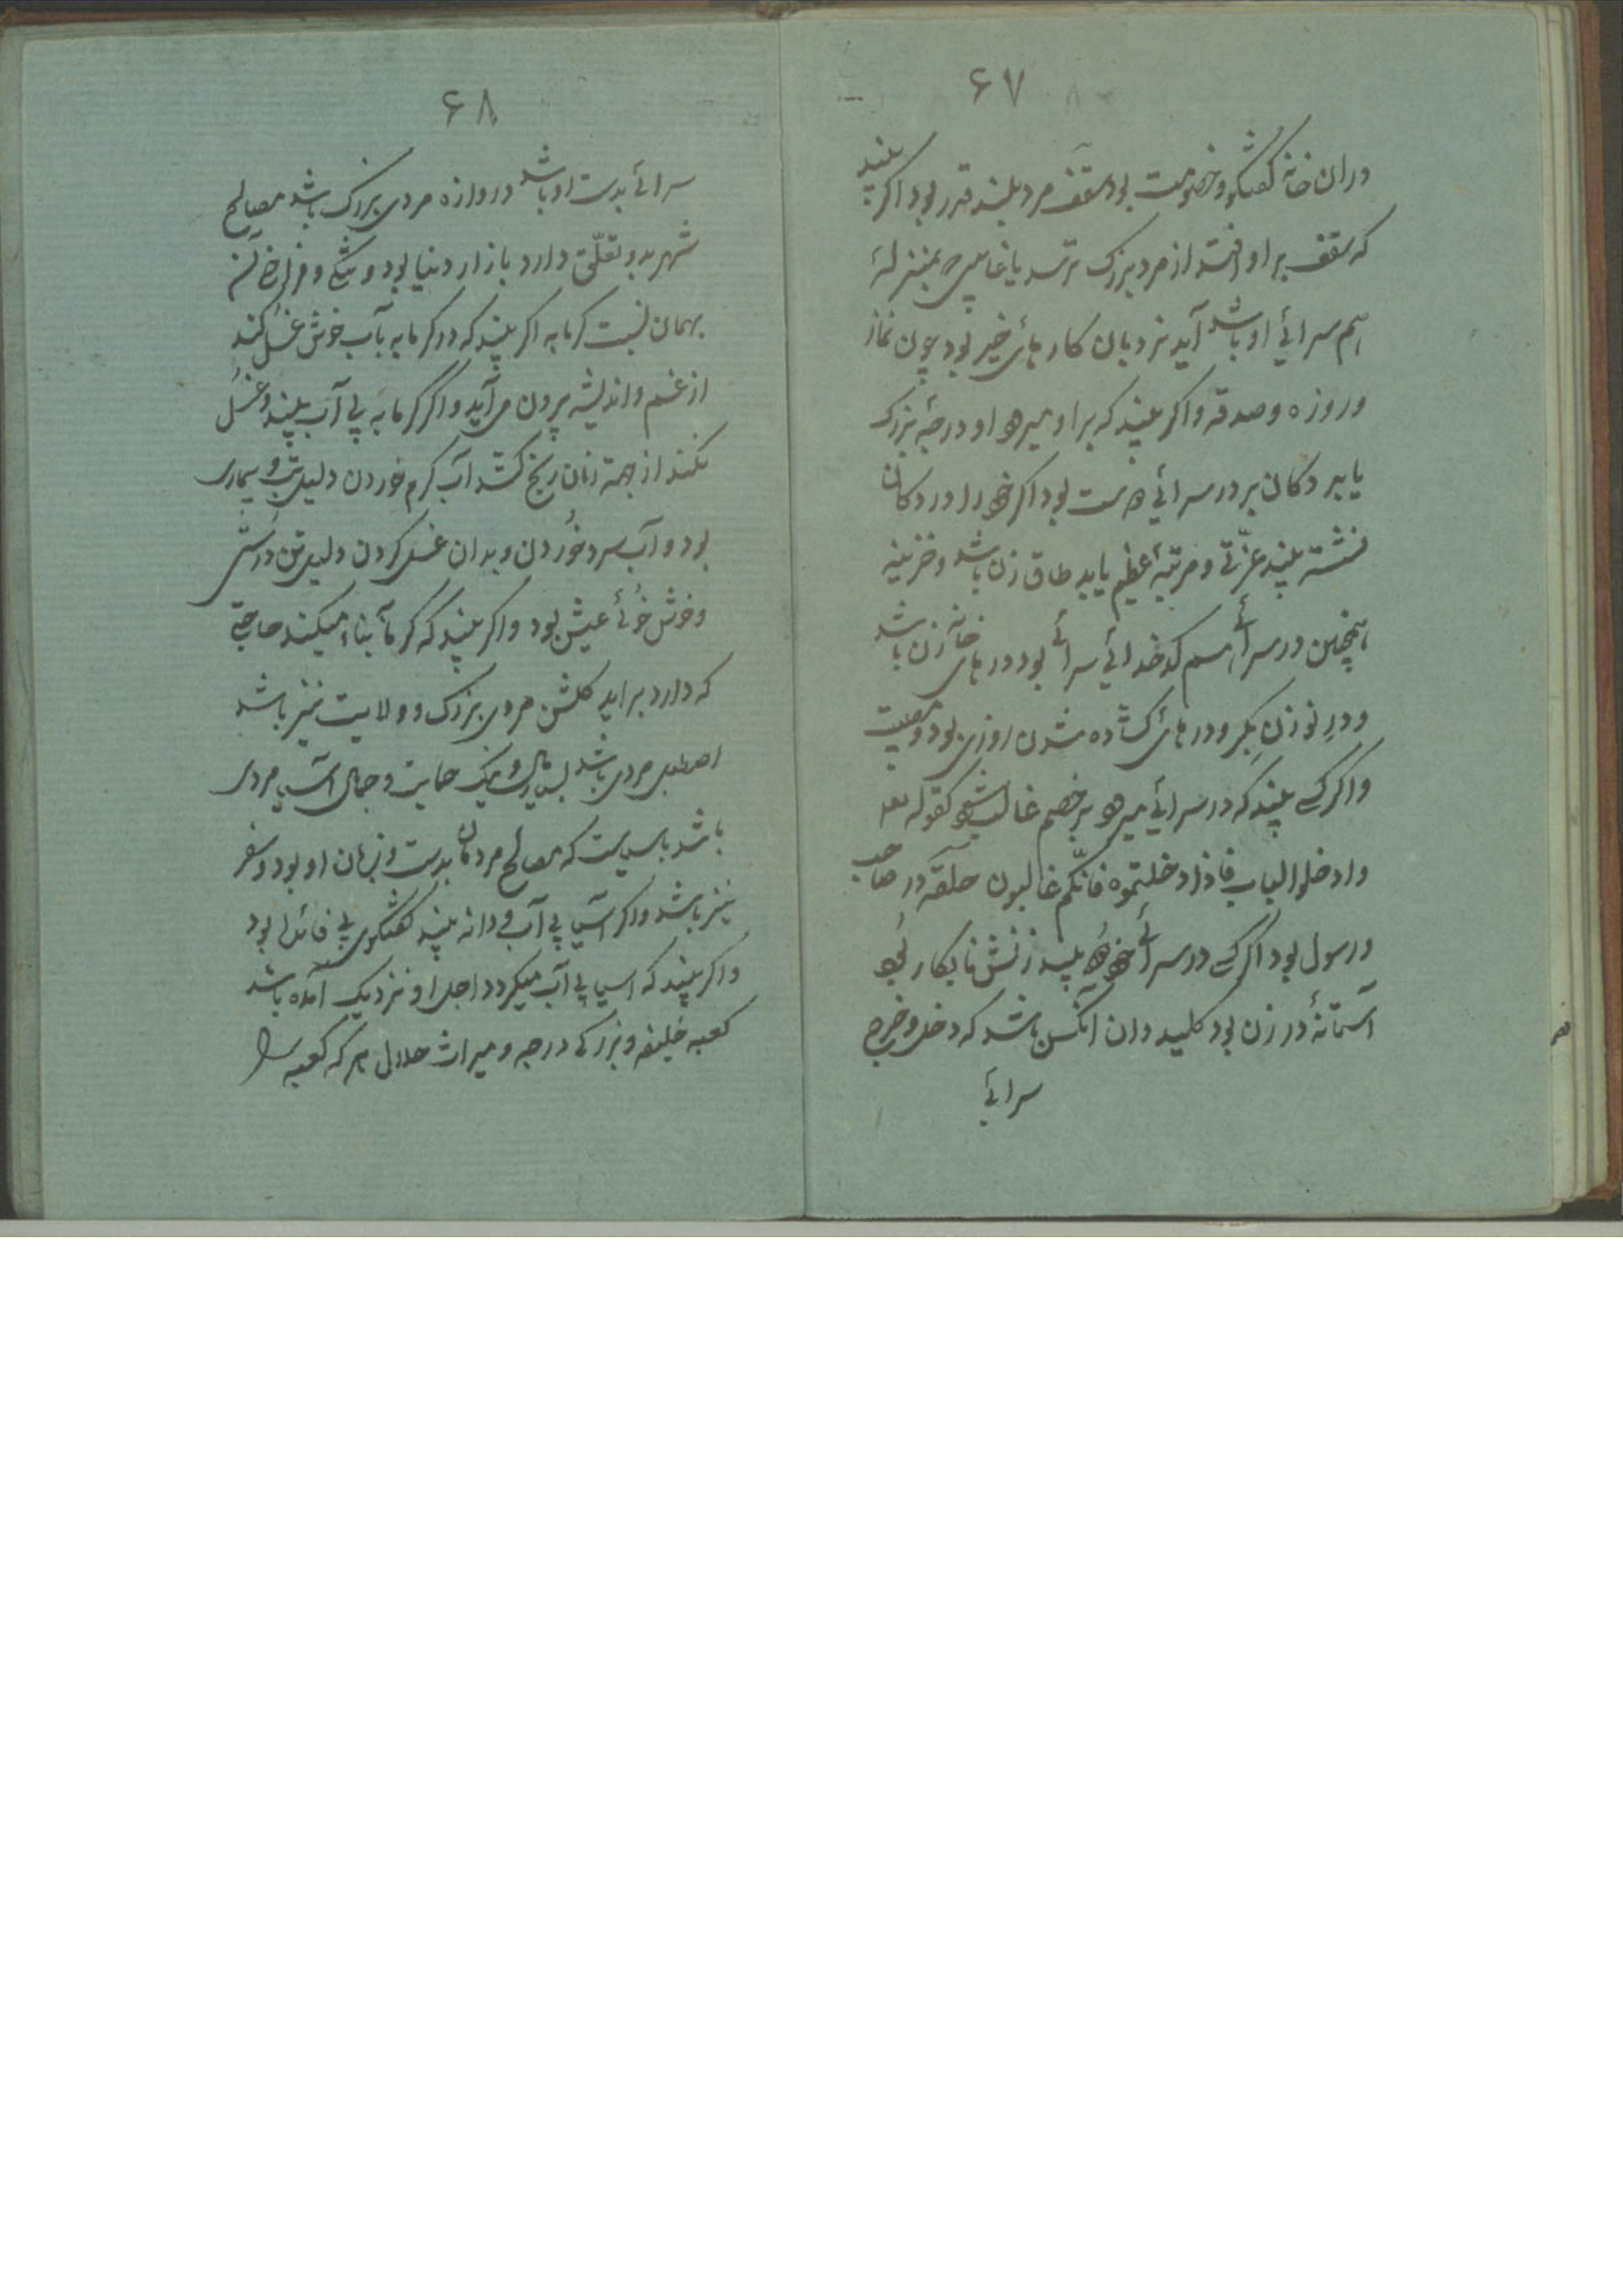 ۶۷
دران خانه گفتگو و خصومت بود سقف مرد بلند قدر بود اگر بیند
که سقف بر او افتد از مرد بزرگ ترسد یا غایبی بمنزله
هم سرائے او باشد آید نردبان کار هائ خیر بود چون نماز
و روزه و صدقه و اگر بیند که بر او میرود او درجهٔ بزرگ
یابد دکان بر در سرائے بود اگر خود را در دکان
نشسته بیند عزّتی و مرتبهٔ عظیم یابد طاق زن باشد و خزینه
همچنین در سرائے اسم کدخدائے سرائے بود درهای خانه زن باشد
و درِ نو زن بکر و در هائ گشاده شدن روزی بود و معیشت
و اگر کسے بیند که در سرائے میرود بر خصم غالب شود کقوله تعه
وادخلوا الباب فاذا دخلتموه فانّکم غالبون حلقه در صاحب
و رسول بود اگر کسے در سرائے خود بیند زنش نابکار بود
آستانهٔ در زن بود کلید دان آنکس باشد که دخل و خرج
سرائے
۶۸
سرائے بدست او باشد دروازه مردی بزرگ باشد مصالح
شهر بدو تعلّق دارد بازار دنیا بود و تنگی و فراخی آن
بهمان نسبت گرمابه اگر بیند که در گرمابه بآب خوش غسل کند
از غم و اندیشه بیرون می آید و اگر گرمابه بی آب بیند و غسل
نکند از جهة زنان رنج کشد آب گرم خوردن دلیل تب و بیماری
بود و آب سرد خوردن و بدان غسل کردن دلیل تن درستی
و خوش خوئے عیش بود و اگر بیند که گرمابه بناء میکند حاجتی
که دارد براید گلشن مردی بزرگ و ولایت نیز باشد
اصطبل مردی باشد بسیار مال و نیک حمایت و جمال آسیا مردی
باشد باسیاست که مصالح مردمان بدست و زبان او بود و سفر
نیز باشد و اگر آسیا بی آب و دانه بیند گفتگوی بی فائده بود
و اگر بیند که اسیا بی آب میگردد اجل او نزدیک آمده باشد
کعبه خلیفه و بزرگی درجه و میراث حلال هر که کعبه را